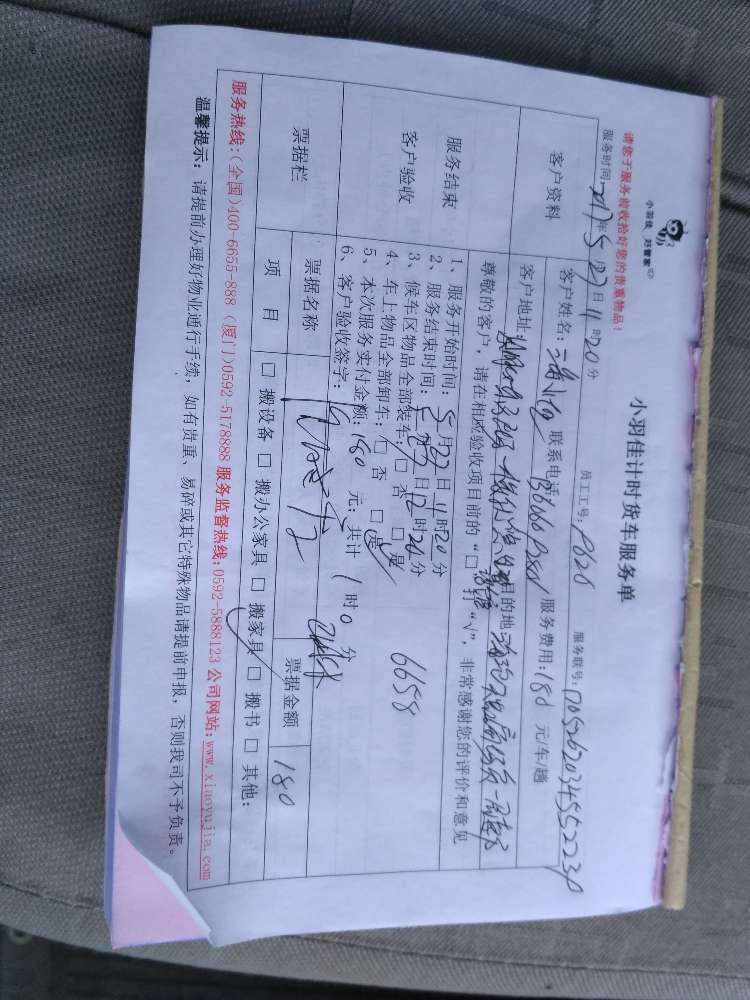 小羽佳 好管家
小羽佳计时货车服务单
请您于服务前收拾好您的贵重物品！
服务时间: 2017年5月27日11时20分 员工工号: P826 服务联号:
客户资料
客户姓名: 联系电话: 服务费用: 180 元/车/趟
客户地址: 目的地
尊敬的客户，请在相应验收项目前的“□”打“√”，非常感谢您的评价和意见
服务结束
客户验收
1、服务开始时间: 5月27日11时20分
2、服务结束时间: 5月27日12时20分
3、候车区物品全部装车: □否 □是
4、车上物品全部卸车: □否 □是 6658
5、本次服务实付金额: 180 元; 共计 1 时 0 分
6、客户验收签字:
票据栏
票据名称 票据金额 180
项 目 □ 搬设备 □ 搬办公家具 □ 搬家具 □ 搬书 □ 其他:
服务热线:(全国)400-6655-888 (厦门)0592-5178888 服务监督热线:0592-5888123 公司网站:www.xiaoyujia.com
温馨提示: 请提前办理好物业通行手续，如有贵重、易碎或其它特殊物品请提前申报，否则我司不予负责。